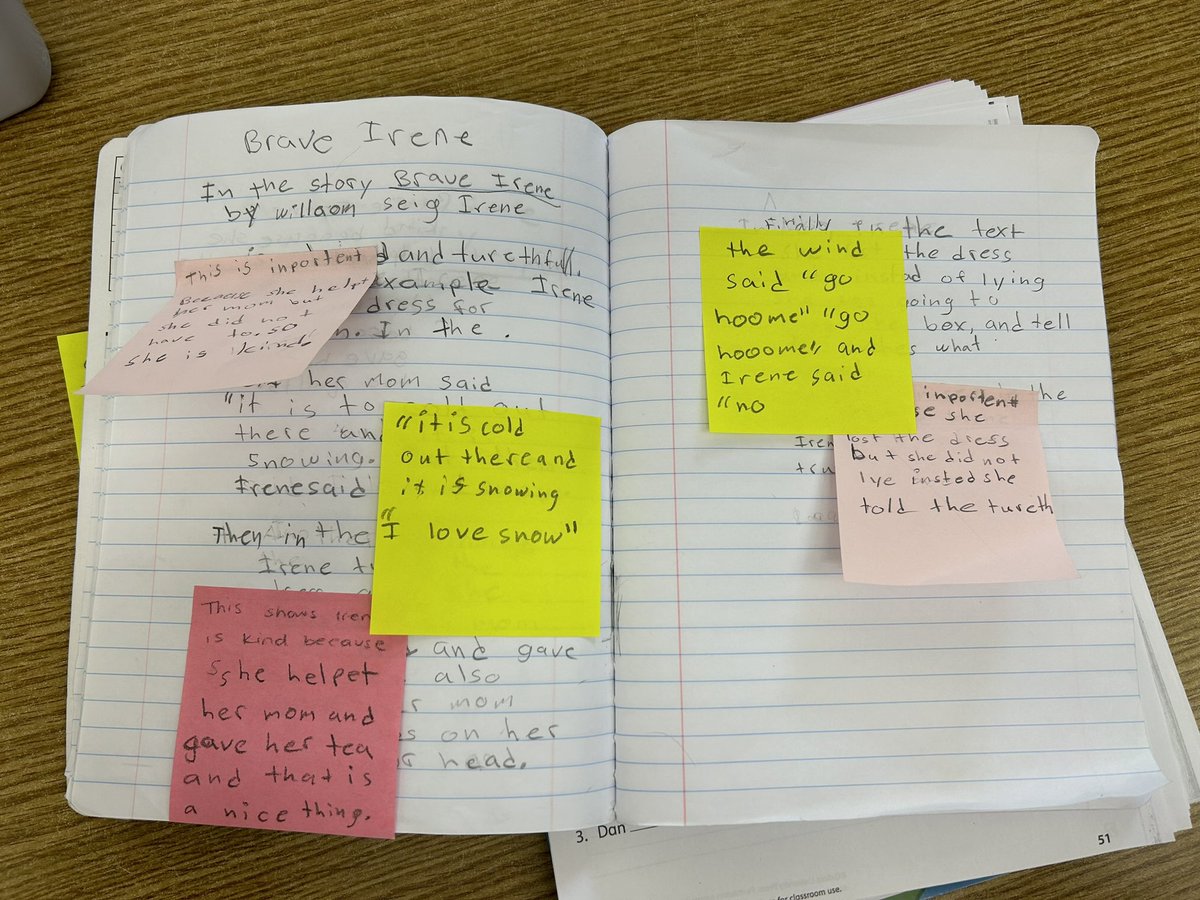 Brave Irene
In the story Brave Irene
by willaom seig Irene
and turethfull.
example Irene
dress for
In the .
her mom said
"it is to
there and
snowing.
Irene said
Then in the
Irene
and gave
also
mom
on her
head.
This is inportent
Because she helpt
her mom but
she did not
have to. so
she is kind
"it is cold
out there and
it is snowing
"I love snow"
This shows Iren
is kind because
she helpet
her mom and
gave her tea
and that is
a nice thing.
Finally the text
the dress
of lying
going to
box, and tell
what
the
the wind
said "go
hoome" "go
hooome" and
Irene said
"no
inportent
she
lost the dress
but she did not
lye insted she
told the tureth
3. Dan
51
for classroom use.